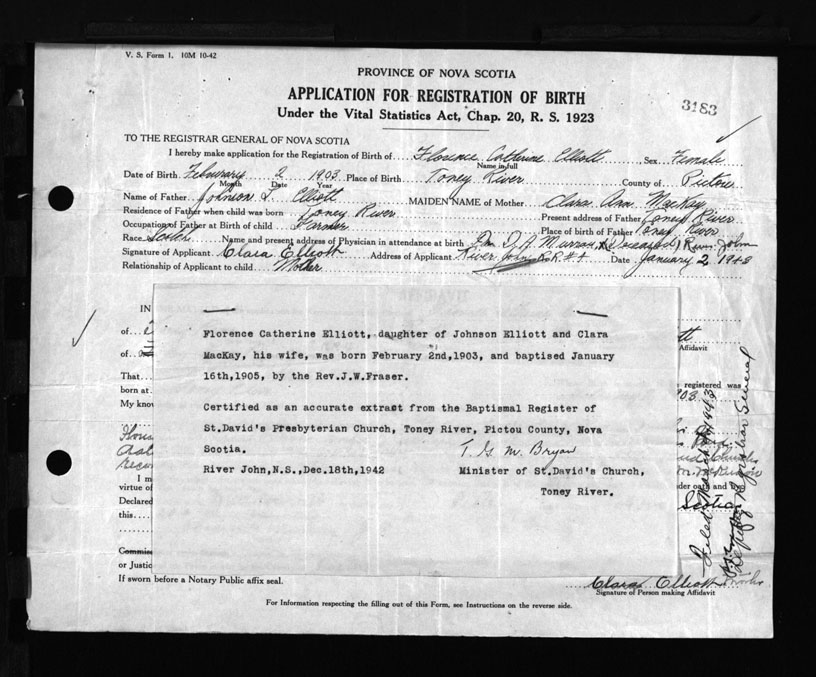 V. S. Form 1. 10M 10-42
PROVINCE OF NOVA SCOTIA
APPLICATION FOR REGISTRATION OF BIRTH
3183
Under the Vital Statistics Act, Chap. 20, R. S. 1923
TO THE REGISTRAR GENERAL OF NOVA SCOTIA
I hereby make application for the Registration of Birth of Florence Catherine Elliott Sex Female
Name in full
Date of Birth February 2 1903 Place of Birth Toney River County of Pictou
Month Date Year
Name of Father Johnson Elliott MAIDEN NAME of Mother Clara Ann MacKay
Residence of Father when child was born Toney River Present address of Father Toney River
Occupation of Father at Birth of child Farmer Place of birth of Father Toney River
Race Name and present address of Physician in attendance at birth (Deceased) River John
Signature of Applicant Clara Elliott Address of Applicant River John R.R. # Date January 2 1943
Relationship of Applicant to child Mother
IN
of
Affidavit
of
That registered was
born at
My know
Florence Catherine Elliott, daughter of Johnson Elliott and Clara
MacKay, his wife, was born February 2nd,1903, and baptised January
16th,1905, by the Rev.J.W.Fraser.
Certified as an accurate extract from the Baptismal Register of
St.David's Presbyterian Church, Toney River, Pictou County, Nova
Scotia.
River John,N.S.,Dec.18th,1942 Minister of St.David's Church,
Toney River.
I m
virtue of
der oath and by
Declared Scotia
this
Commis
or Justic
If sworn before a Notary Public affix seal.
Clara Elliott
Signature of Person making Affidavit
Deputy Registrar General
For Information respecting the filling out of this Form, see Instructions on the reverse side.